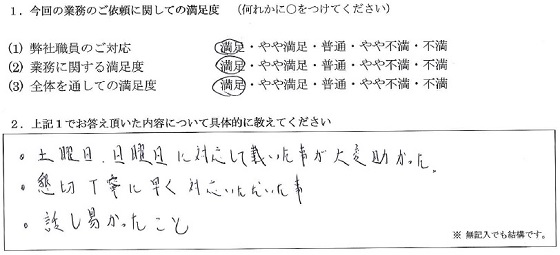 1．今回の業務のご依頼に関しての満足度　（何れかに○をつけてください）
(1) 弊社職員のご対応　満足・やや満足・普通・やや不満・不満
(2) 業務に関する満足度　満足・やや満足・普通・やや不満・不満
(3) 全体を通しての満足度　満足・やや満足・普通・やや不満・不満
2．上記1でお答え頂いた内容について具体的に教えてください
・土曜日、日曜日に対応して戴いた事が大変助かった。
・懇切丁寧に早く対応いただいた事
・話し易かったこと
※ 無記入でも結構です。